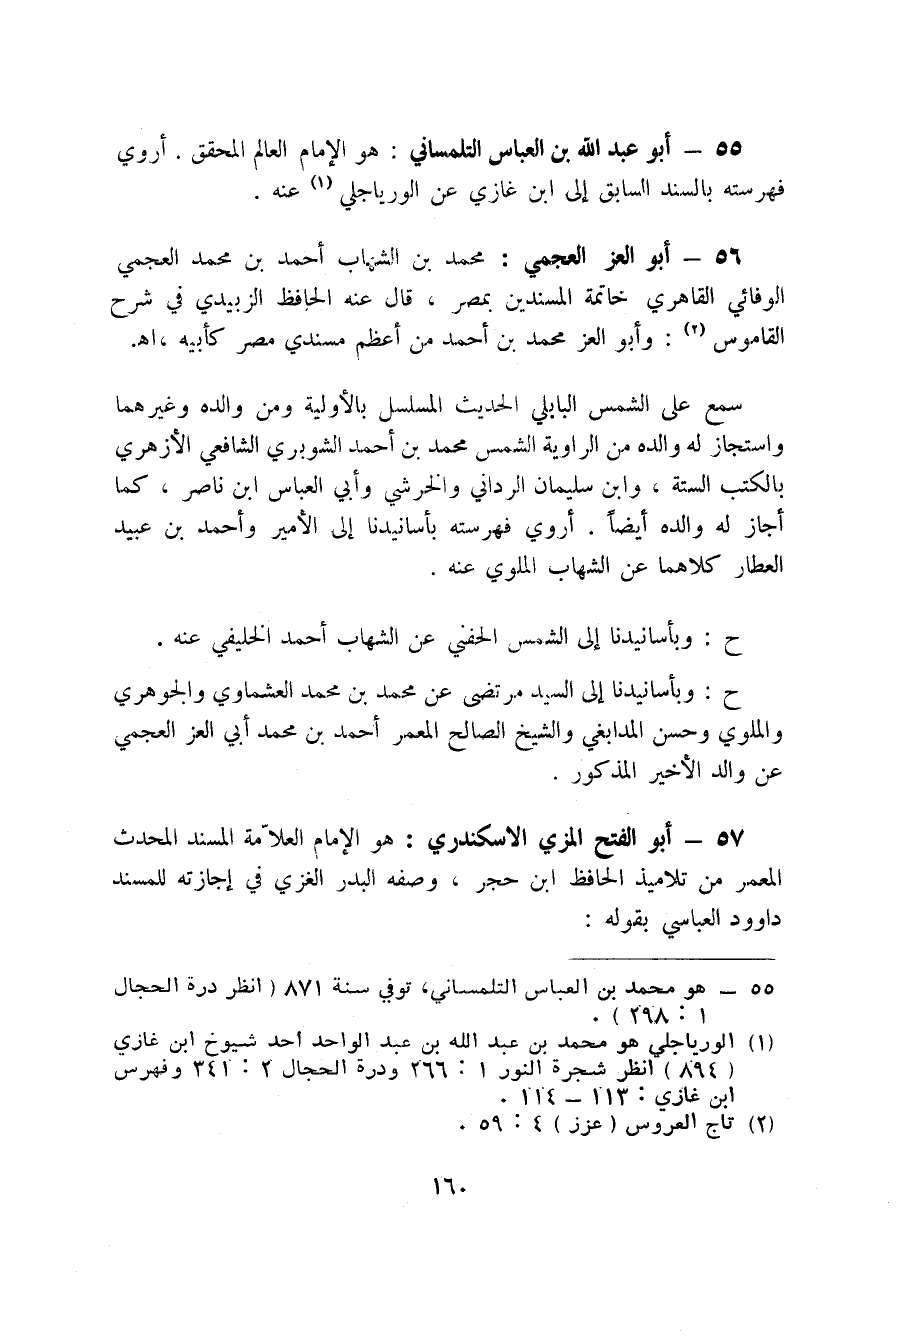 ٥٥ – أبو عبد الله بن العباس التلمساني : هو الإمام العالم المحقق . أروي
فهرسته بالسند السابق إلى ابن غازي عن الورياجلي (١) عنه .
٥٦ – أبو العز العجمي : محمد بن الشهاب أحمد بن محمد العجمي
الوفائي القاهري خاتمة المسندين بمصر ، قال عنه الحافظ الزبيدي في شرح
القاموس (٢) : وأبو العز محمد بن أحمد من أعظم مسندي مصر كأبيه ، اه.
سمع على الشمس البابلي الحديث المسلسل بالأولية ومن والده وغيرهما
واستجاز له والده من الراوية الشمس محمد بن أحمد الشوبري الشافعي الأزهري
بالكتب الستة ، وابن سليمان الرداني والخرشي وأبي العباس ابن ناصر ، كما
أجاز له والده أيضاً . أروي فهرسته بأسانيدنا إلى الأمير وأحمد بن عبيد
العطار كلاهما عن الشهاب الملوي عنه .
ح : وبأسانيدنا إلى الشمس الحفني عن الشهاب أحمد الخليفي عنه .
ح : وبأسانيدنا إلى السيد مرتضى عن محمد بن محمد العشماوي والجوهري
والملوي وحسن المدابغي والشيخ الصالح المعمر أحمد بن محمد أبي العز العجمي
عن والد الأخير المذكور .
٥٧ – أبو الفتح المزي الاسكندري : هو الإمام العلاّمة المسند المحدث
المعمر من تلاميذ الحافظ ابن حجر ، وصفه البدر الغزي في إجازته للمسند
داوود العباسي بقوله :
٥٥ – هو محمد بن العباس التلمساني، توفي سنة ٨٧١ ( انظر درة الحجال
١ : ٢٩٨ ) .
(١) الورياجلي هو محمد بن عبد الله بن عبد الواحد احد شيوخ ابن غازي
( ٨٩٤ ) انظر شجرة النور ١ : ٢٦٦ ودرة الحجال ٢ : ٣٤١ وفهرس
ابن غازي : ١١٣ – ١١٤ .
(٢) تاج العروس ( عزز ) ٤ : ٥٩ .
١٦٠